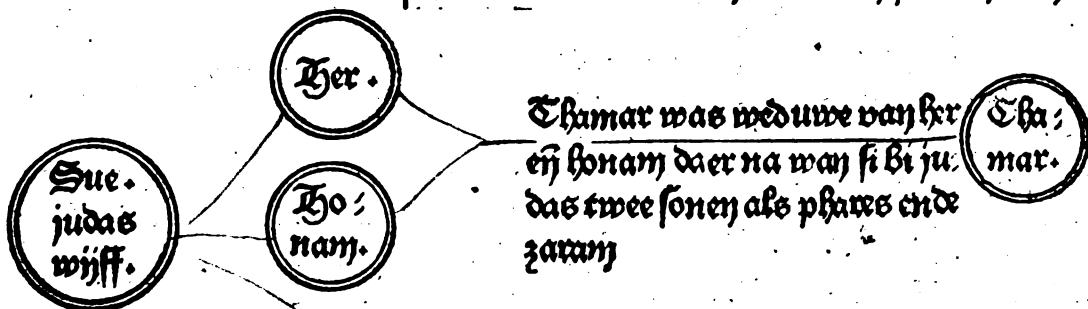 Her.
Sue.
judas
wijff.
Ho:
nam.
Thamar was weduwe van her
en̄ honam daer na wan si bi ju:
das twee sonen als phares ende
zaram
Tha:
mar.